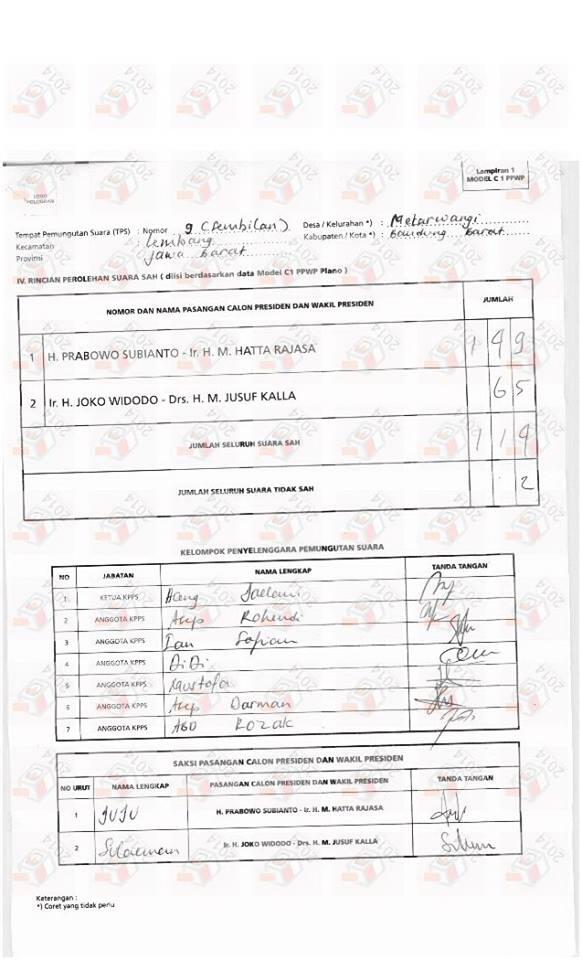 2014 2014 2014 2014 2014 2014 2014 2014
LOGO HOLOGRAM
Lampiran 1
MODEL C 1 PPWP
Tempat Pemungutan Suara (TPS) : Nomor 9 (sembilan) Desa / Kelurahan *) : Mekarwangi
Kecamatan : Lembang Kabupaten / Kota *) : Bandung Barat
Provinsi : Jawa Barat
IV. RINCIAN PEROLEHAN SUARA SAH ( diisi berdasarkan data Model C1 PPWP Plano )
NOMOR DAN NAMA PASANGAN CALON PRESIDEN DAN WAKIL PRESIDEN JUMLAH
1 H. PRABOWO SUBIANTO - Ir. H. M. HATTA RAJASA 1 4 9
2 Ir. H. JOKO WIDODO - Drs. H. M. JUSUF KALLA 6 5
JUMLAH SELURUH SUARA SAH 1 1 4
JUMLAH SELURUH SUARA TIDAK SAH 2
KELOMPOK PENYELENGGARA PEMUNGUTAN SUARA
NO JABATAN NAMA LENGKAP TANDA TANGAN
1 KETUA KPPS Aceng Jaelani
2 ANGGOTA KPPS Asep Rohendi
3 ANGGOTA KPPS Ian Sopian
4 ANGGOTA KPPS DiDi
5 ANGGOTA KPPS Mustofa
6 ANGGOTA KPPS Asep Darman
7 ANGGOTA KPPS ABD Rozak
SAKSI PASANGAN CALON PRESIDEN DAN WAKIL PRESIDEN
NO URUT NAMA LENGKAP PASANGAN CALON PRESIDEN DAN WAKIL PRESIDEN TANDA TANGAN
1 JUJU H. PRABOWO SUBIANTO - Ir. H. M. HATTA RAJASA
2 Sulaeman Ir. H. JOKO WIDODO - Drs. H. M. JUSUF KALLA
Keterangan :
*) Coret yang tidak perlu